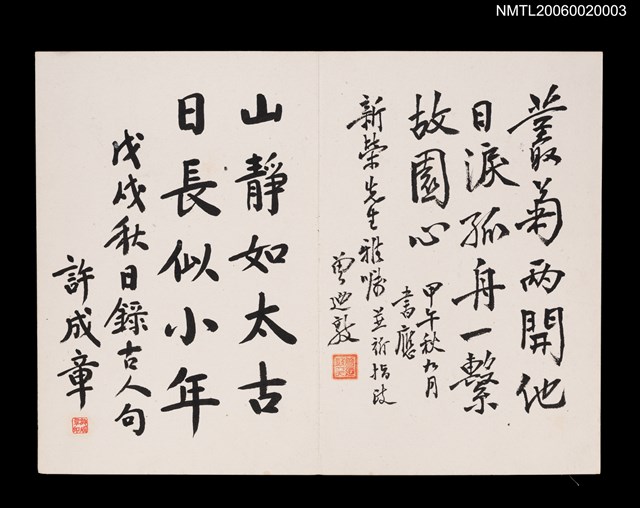 NMTL20060020003
叢菊兩開他
日淚孤舟一繫
故園心
甲午秋九月
書應
新榮先生雅囑並祈指政
山靜如太古
日長似小年
戊戌秋日錄古人句
許成章